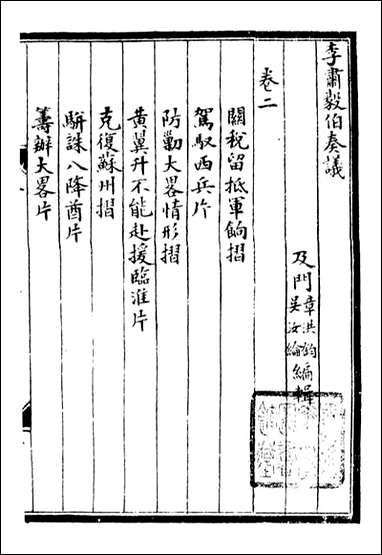 李肅毅伯奏議
及門章洪鈞吳汝綸編輯
卷二
關稅留抵軍餉摺
駕馭西兵片
防勦大畧情形摺
黃翼升不能赴援臨淮片
克復蘇州摺
駢誅八降酋片
籌辦大畧片